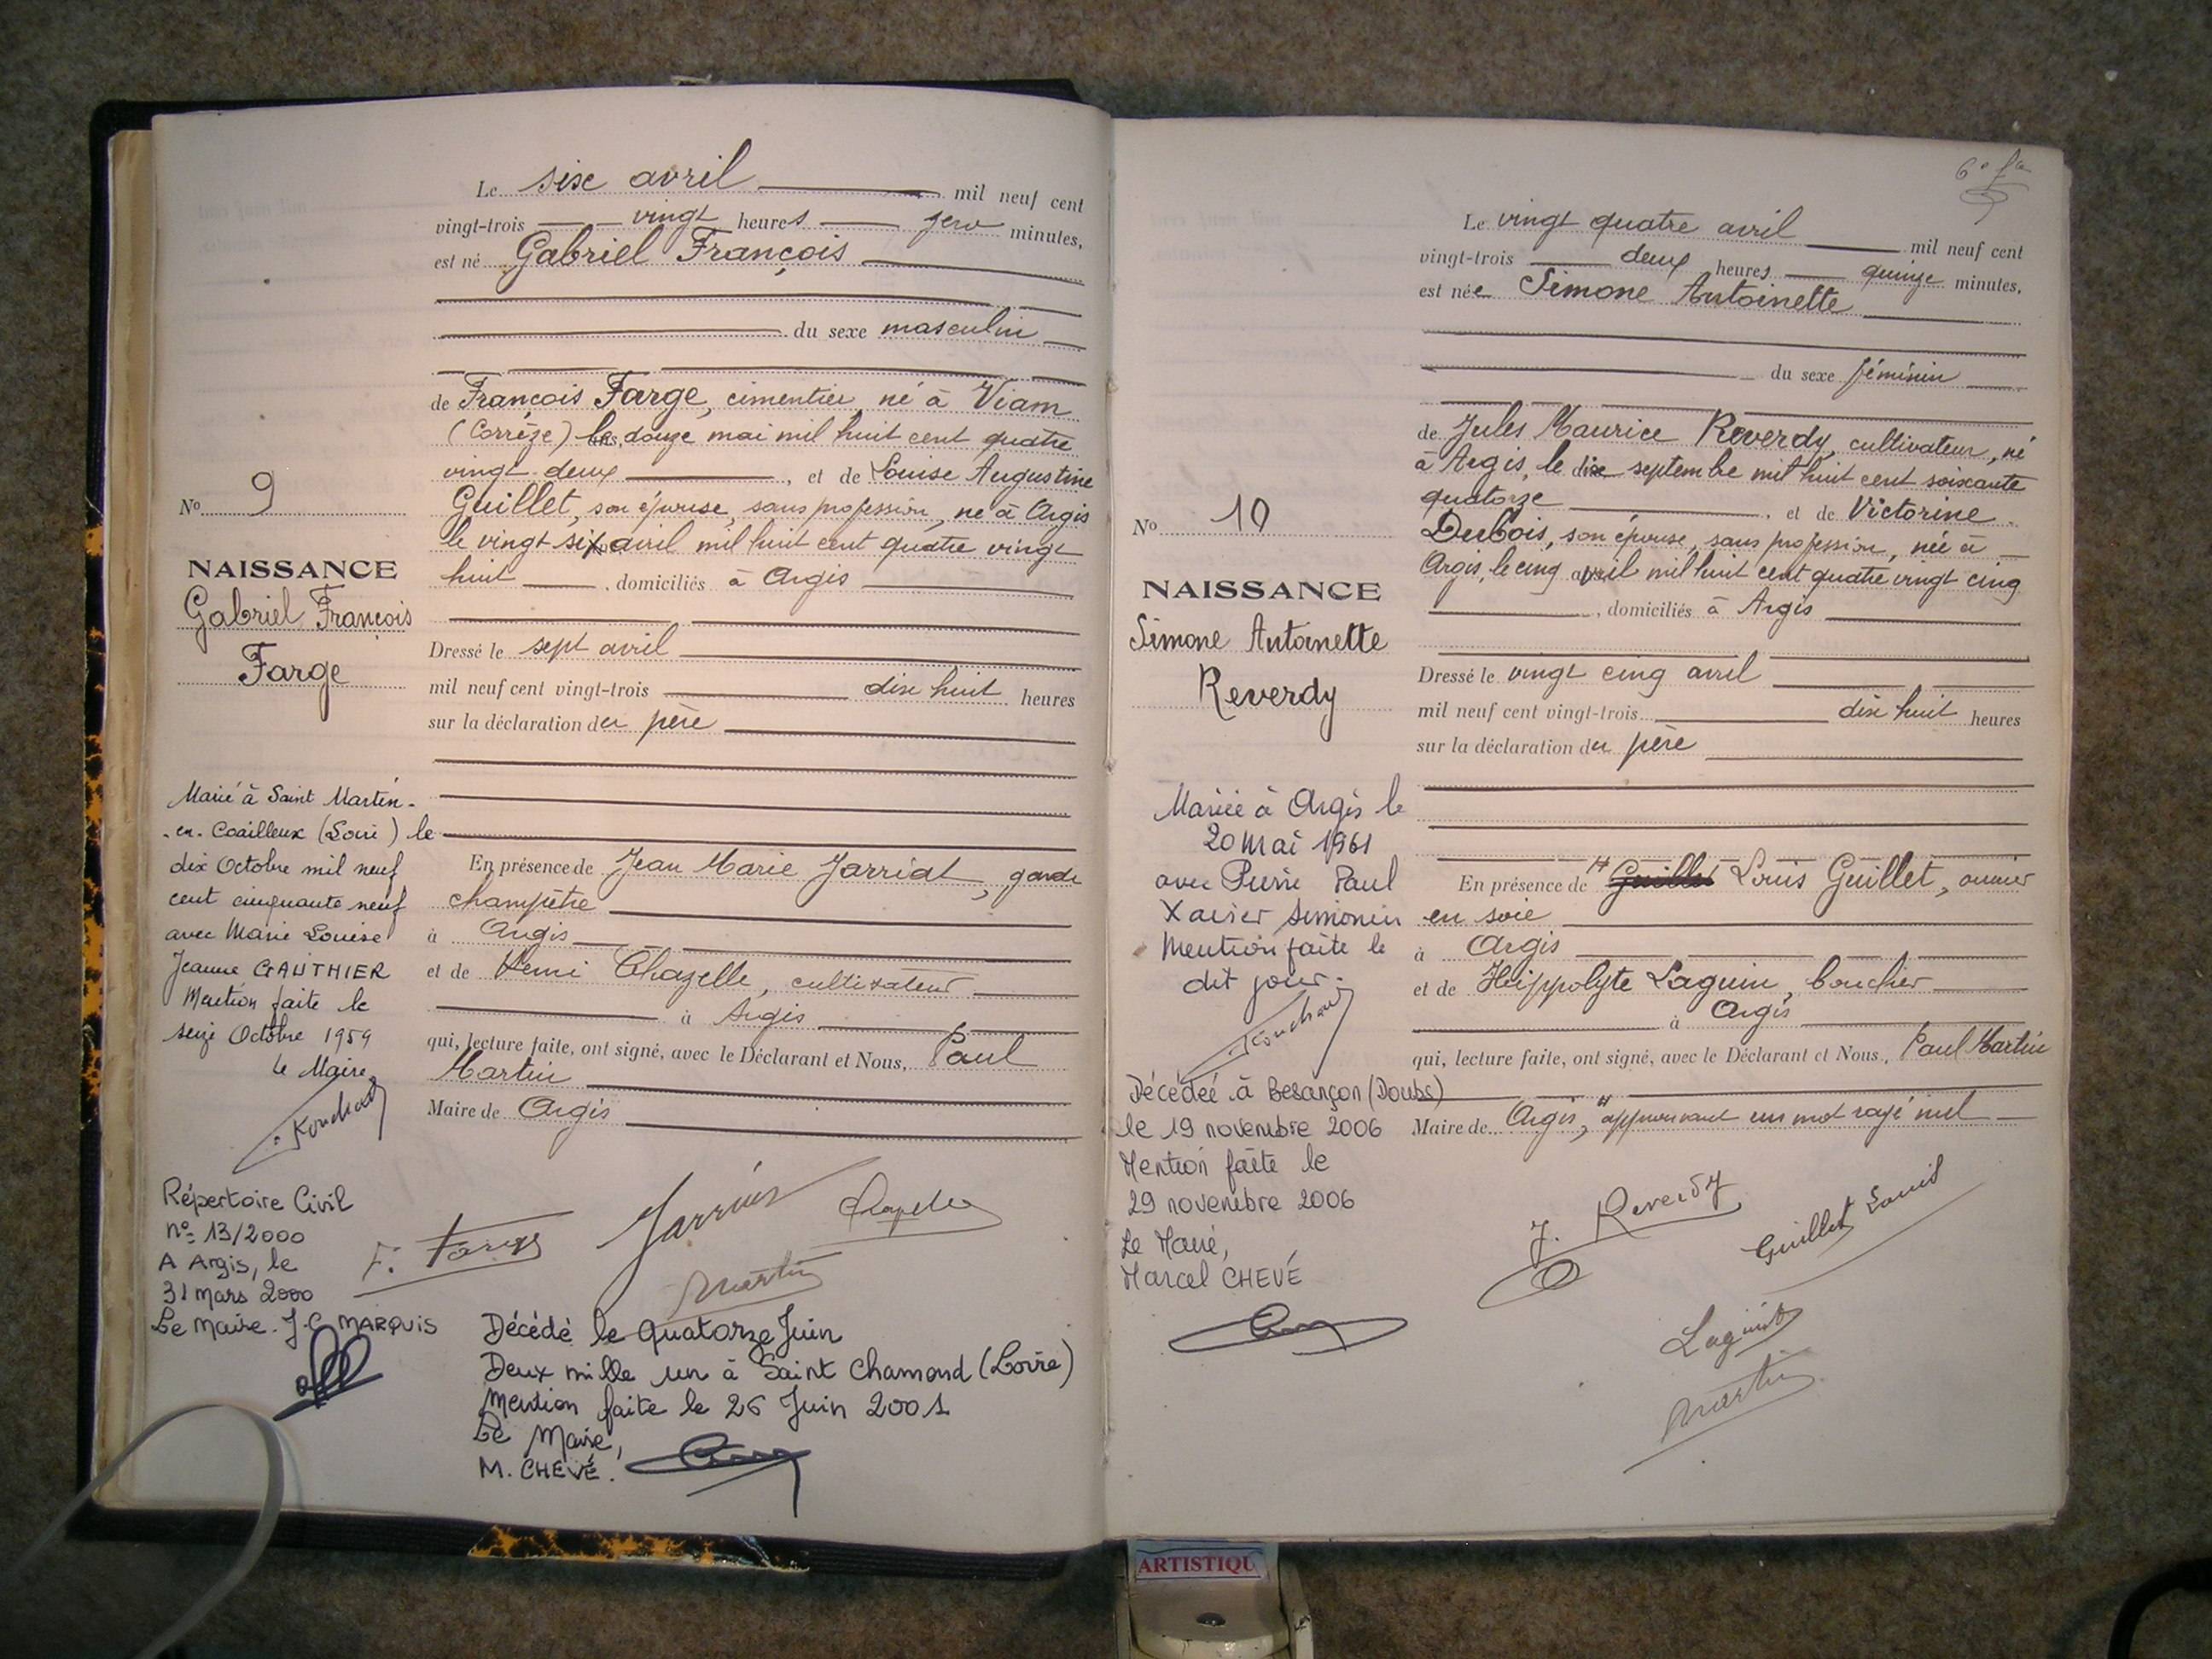 Le sixe avril mil neuf cent
vingt-trois vingt heures zero minutes,
est né Gabriel François
du sexe masculin
de François Farge, cimentier né à Viam
(Corrèze) le douze mai mil huit cent quatre
vingt deux, et de Louise Augustine
Guillet, son épouse, sans profession, né à Argis
le vingt six avril mil huit cent quatre vingt
huit, domiciliés à Argis
Dressé le sept avril
mil neuf cent vingt-trois dix huit heures
sur la déclaration du père
En présence de Jean Marie Jarriat, garde
champêtre
à Argis
et de Remi Chazelle, cultivateur
à Argis
qui, lecture faite, ont signé, avec le Déclarant et Nous, Paul
Martin
Maire de Argis
F. Farge
Martin
No 9
NAISSANCE
Gabriel François
Farge
Marié à Saint Martin-
-en-Coailleux (Loire) le
dix Octobre mil neuf
cent cinquante neuf
avec Marie Louise
Jeanne GAUTHIER
Mention faite le
seize Octobre 1959
Le Maire
Répertoire Civil
n° 13/2000
A Argis, le
31 mars 2000
Le Maire. J-C MARQUIS
Décédé le quatorze Juin
Deux mille un à Saint Chamond (Loire)
Mention faite le 26 Juin 2001
Le Maire,
M. CHEVÉ.
6e
Le vingt quatre avril mil neuf cent
vingt-trois deux heures quinze minutes,
est née Simone Antoinette
du sexe féminin
de Jules Maurice Reverdy, cultivateur, né
à Argis, le dix septembre mil huit cent soixante
quatorze, et de Victorine
Dubois, son épouse, sans profession, née à
Argis, le cinq avril mil huit cent quatre vingt cinq
, domiciliés à Argis
Dressé le vingt cinq avril
mil neuf cent vingt-trois dix huit heures
sur la déclaration du père
En présence de Guillet Louis Guillet, ouvrier
en soie
à Argis
et de Hippolyte Laguin, boucher
à Argis
qui, lecture faite, ont signé, avec le Déclarant et Nous, Paul Martin
Maire de Argis, "approuvant un mot rayé nul
J. Reverdy
Guillet Louis
Laguin
Martin
No 10
NAISSANCE
Simone Antoinette
Reverdy
Mariée à Argis le
20 Mai 1961
avec Pierre Paul
Xavier Simonin
Mention faite le
dit jour.
Décédée à Besançon (Doubs)
le 19 novembre 2006
Mention faite le
29 novembre 2006
Le Maire,
Marcel CHEVÉ
ARTISTIQU